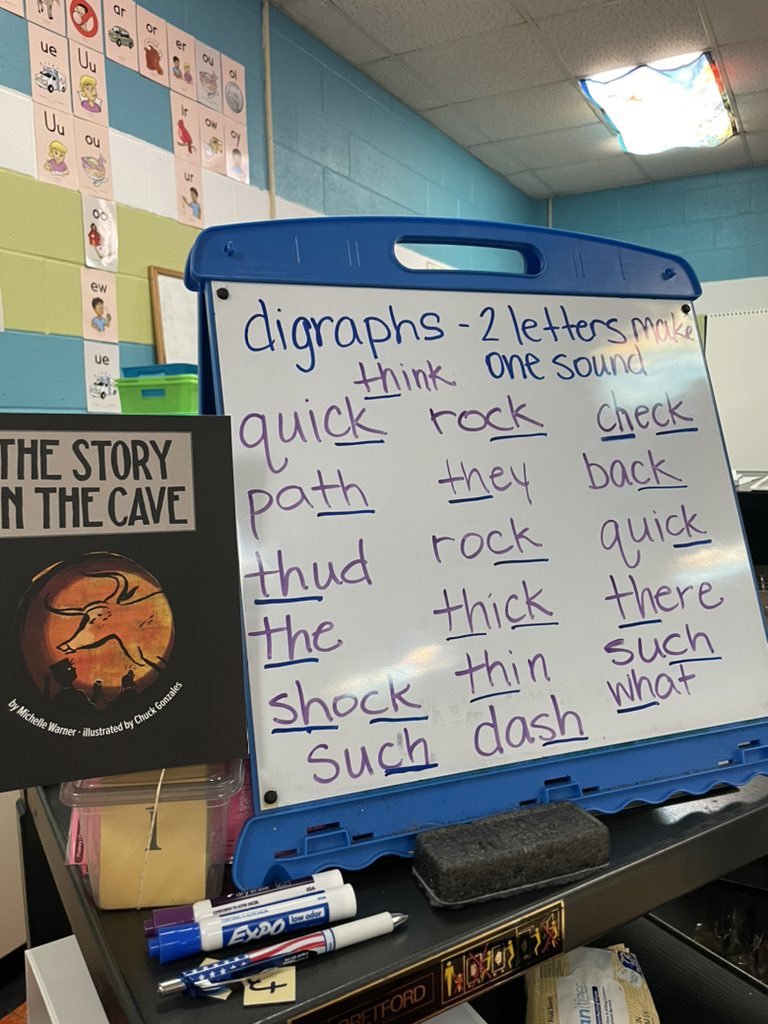 ar
or
er
ou
oi
ue
Uu
ir
ow
oy
Uu
ou
ur
oo
ew
ue
digraphs - 2 letters make
one sound
think
quick rock check
path they back
thud rock quick
the thick there
shock thin such
such dash what
THE STORY
IN THE CAVE
by Michelle Warner · illustrated by Chuck Gonzales
1
USA
EXPO low odor
BRETFORD